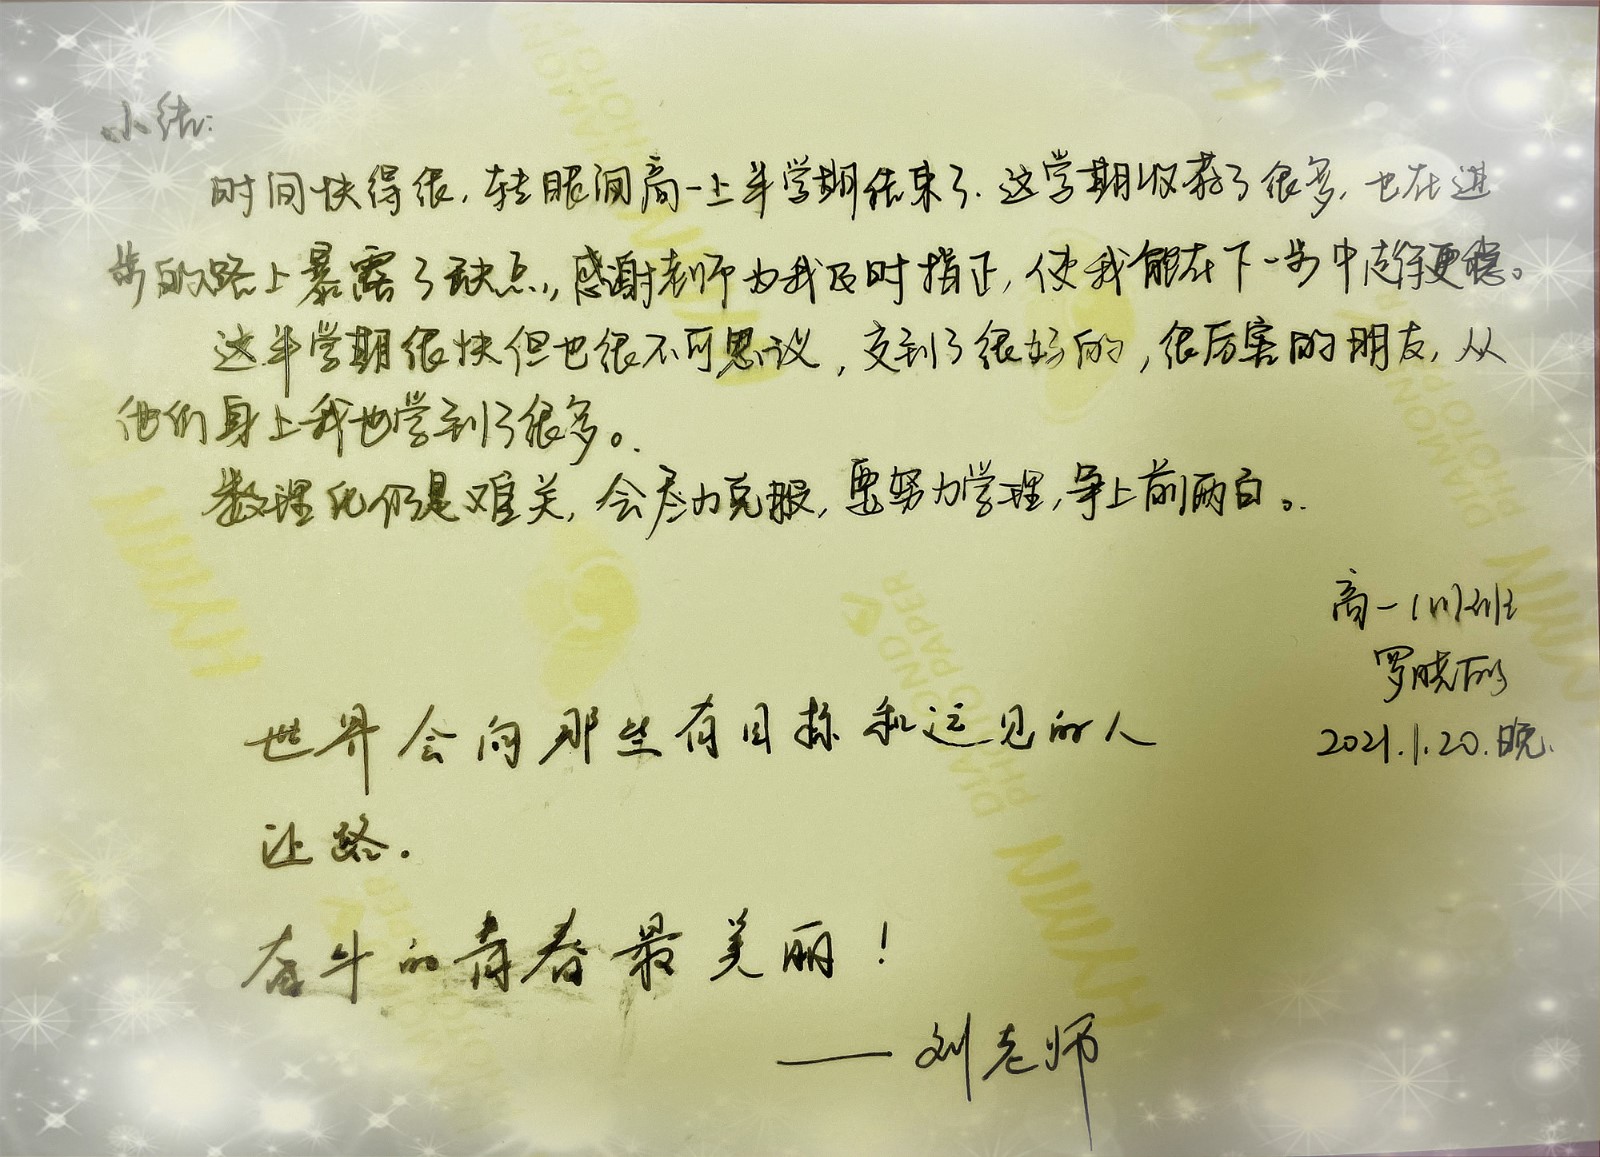 小结:
时间快得很,转眼间高一上半学期结束了.这学期收获了很多,也在进
步的路上暴露了缺点,感谢老师为我及时指正,使我能在下一步中走得更稳。
这半学期很快但也很不可思议,交到了很好的,很厉害的朋友,从
他们身上我也学到了很多。
数理化仍是难关,会尽力克服,要努力学理,争上前两百。
高一(11)班
罗晓
世界会向那些有目标和远见的人
2021.1.20.晚.
让路.
奋斗的青春最美丽!
——刘老师
HYMN
DIAMOND
PHOTO PAPER